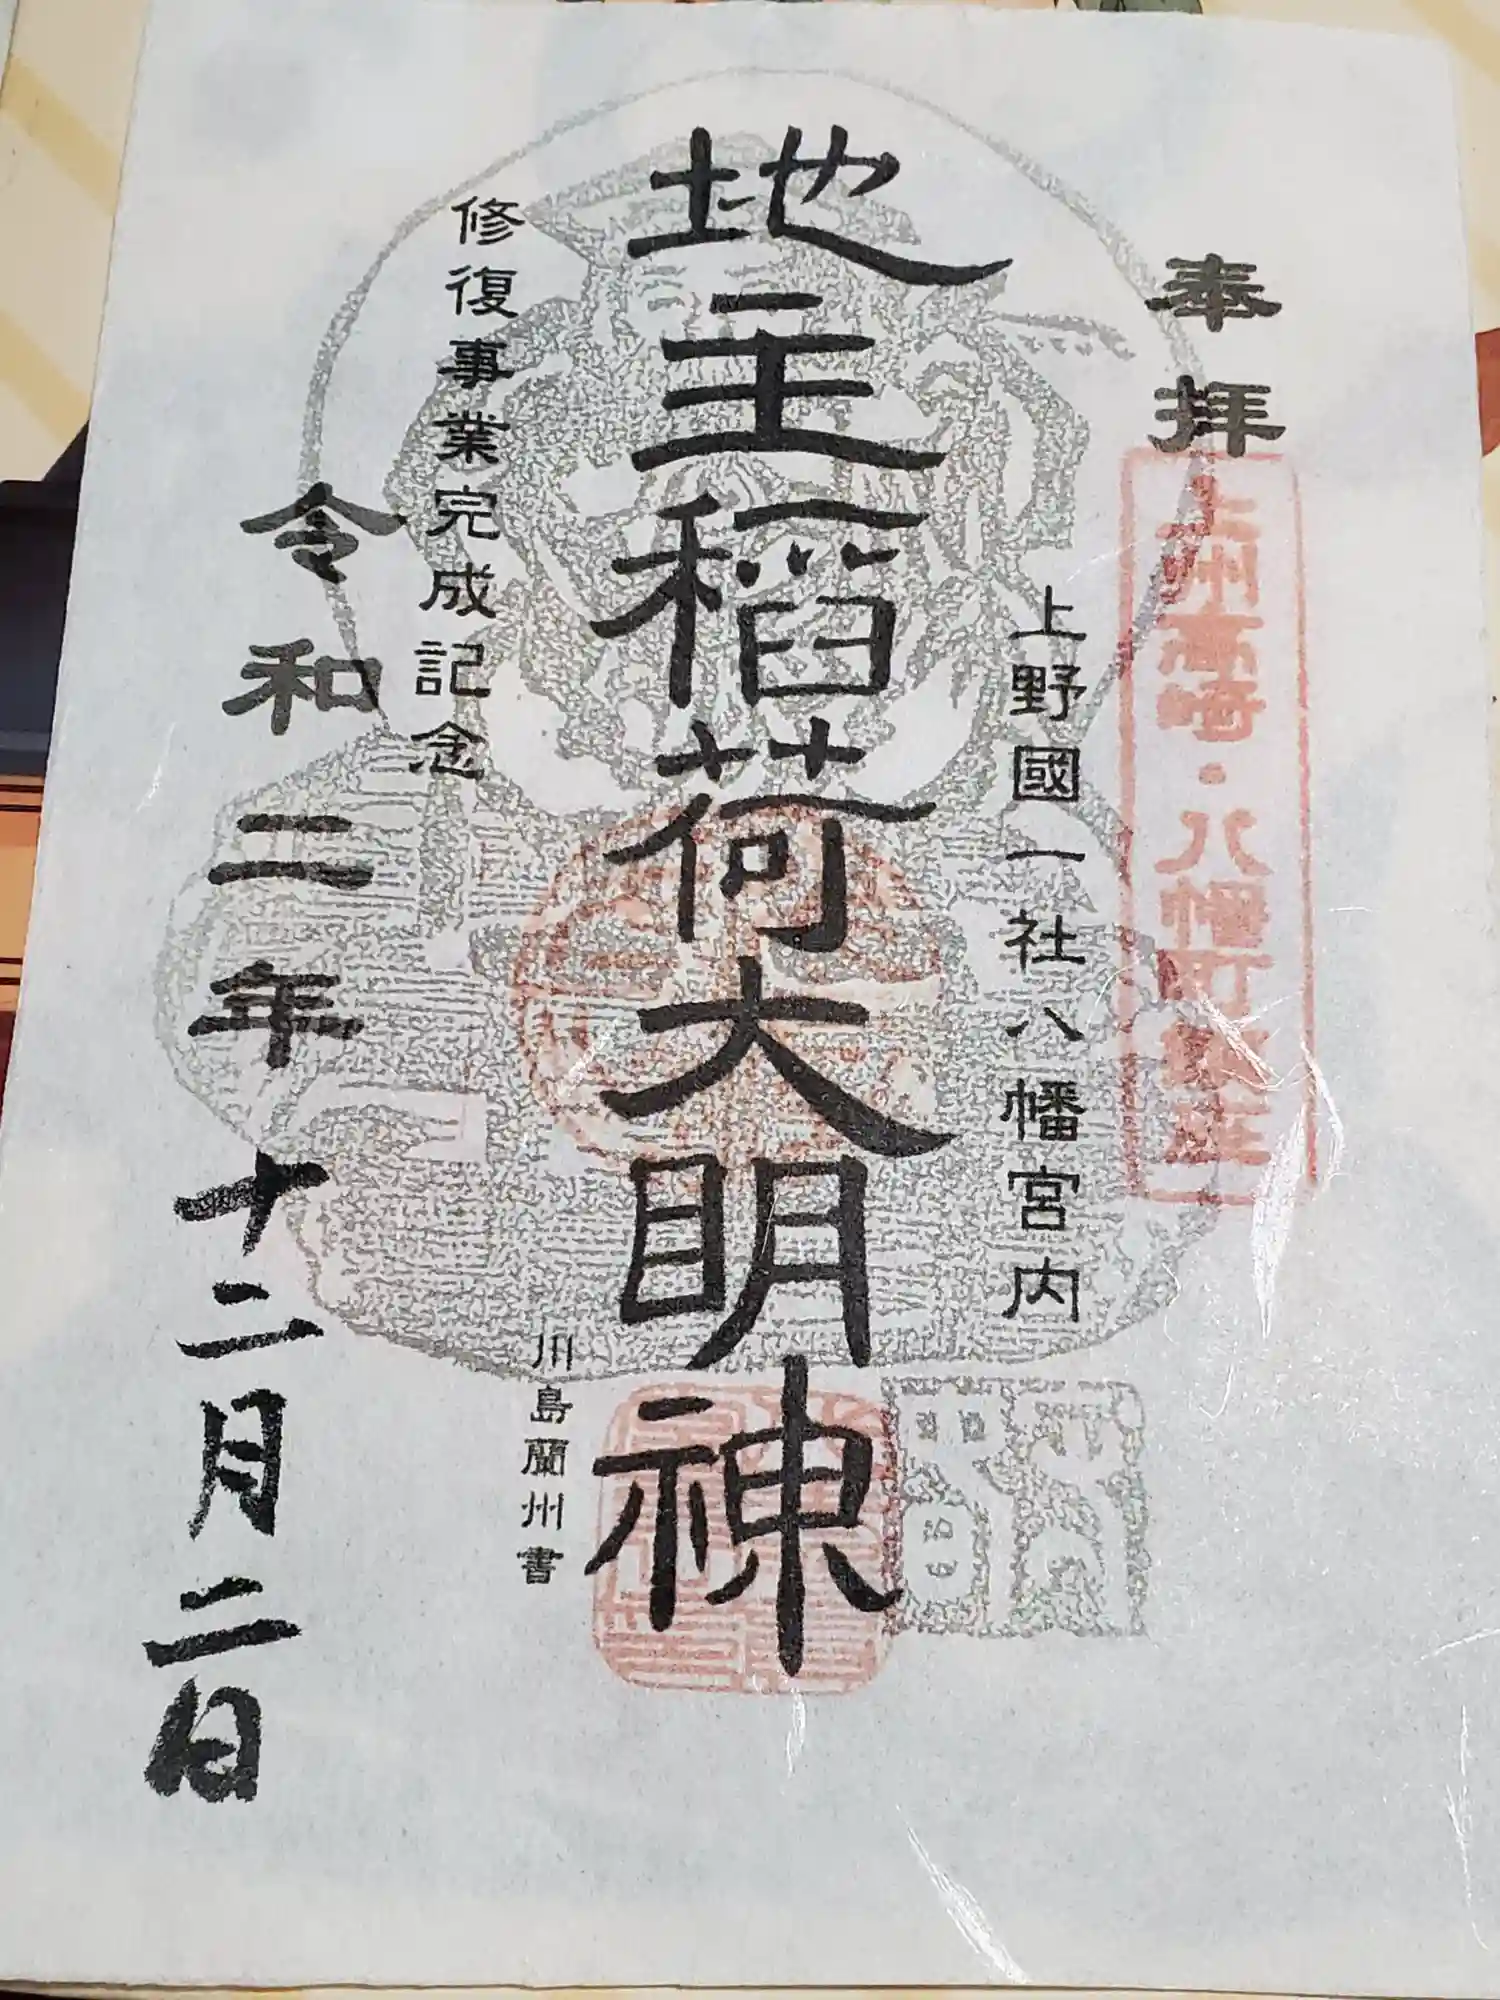 奉拝
上州高崎・八幡町鎮座
上野國一社八幡宮内
地主稲荷大明神
修復事業完成記念
川島蘭州書
令和二年十二月二日